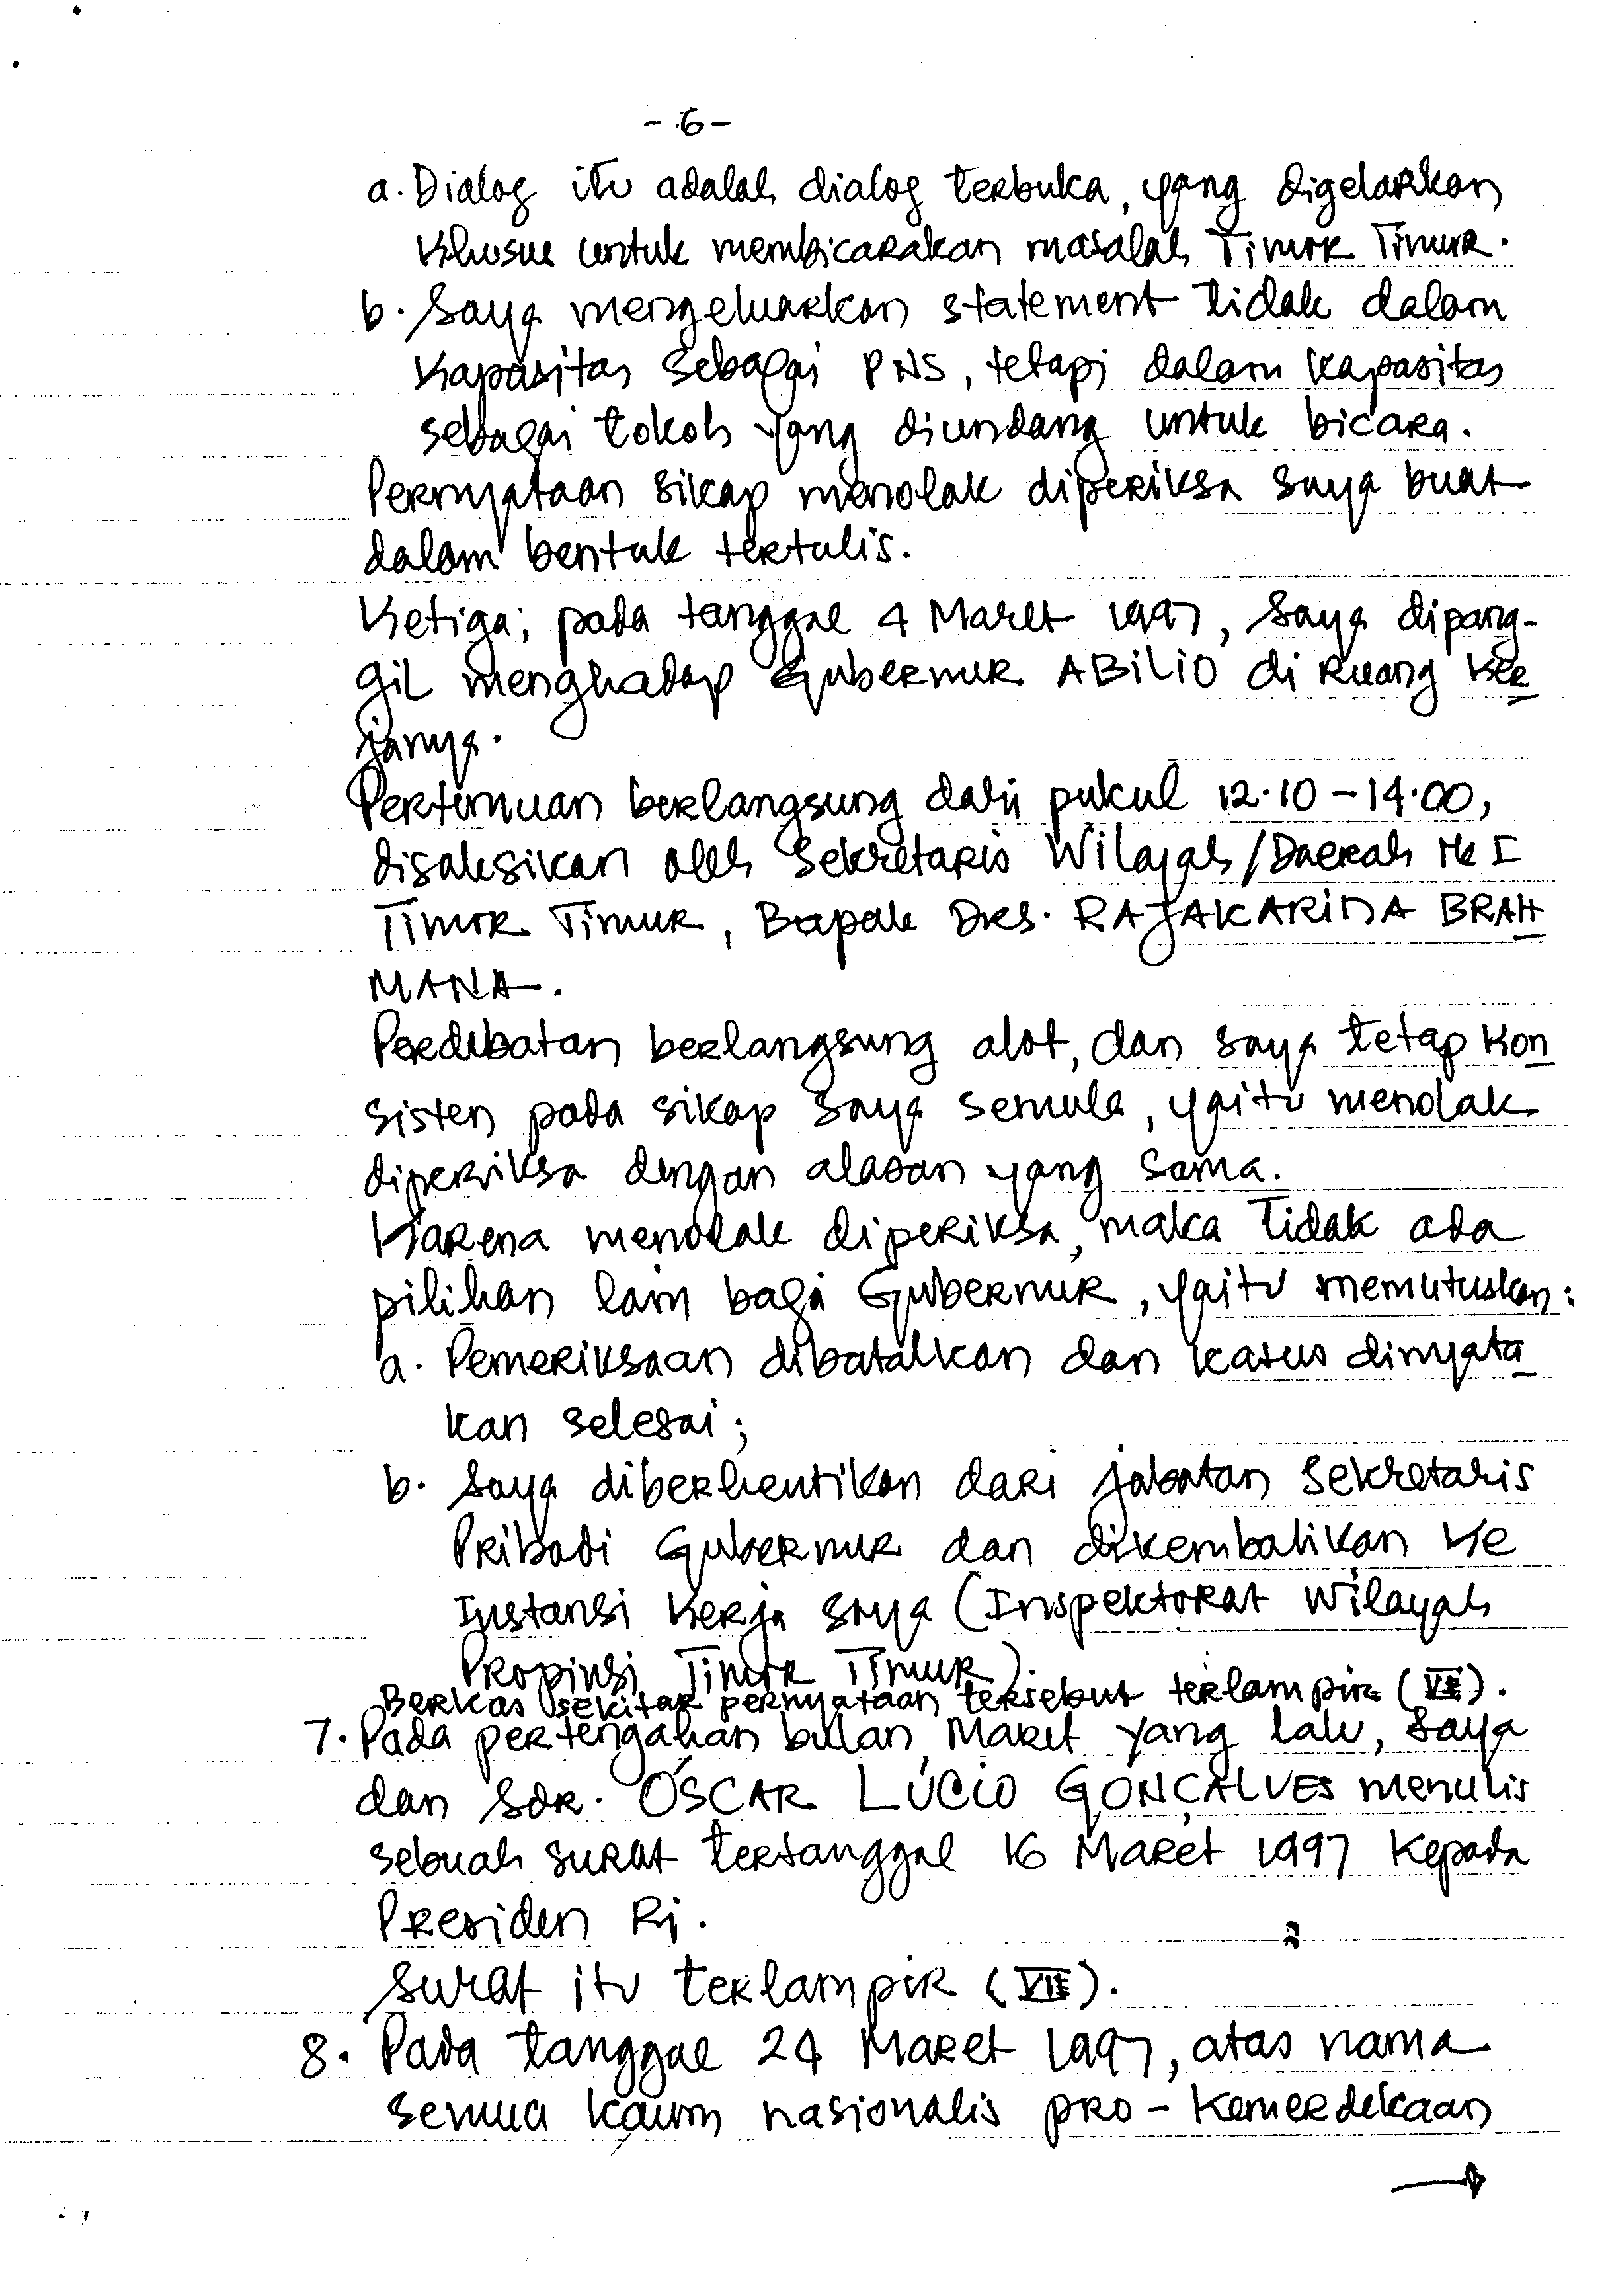 - 6 -
a. Dialog itu adalah dialog terbuka, yang digelarkan
khusus untuk membicarakan masalah Timor Timur.
b. Saya mengeluarkan statement tidak dalam
kapasitas sebagai PNS, tetapi dalam kapasitas
sebagai tokoh yang diundang untuk bicara.
Pernyataan sikap menolak diperiksa saya buat
dalam bentuk tertulis.
Ketiga; pada tanggal 4 Maret 1997, saya dipang-
gil menghadap Gubernur ABILIO di ruang ker
janya.
Pertemuan berlangsung dari pukul 12.10 - 14.00,
disaksikan oleh Sekretaris Wilayah/Daerah Tk I
Timor Timur, Bapak Drs. RAJAKARINA BRAH
MANA.
Perdebatan berlangsung alot, dan saya tetap kon
sisten pada sikap saya semula, yaitu menolak
diperiksa dengan alasan yang sama.
Karena menolak diperiksa, maka tidak ada
pilihan lain bagi Gubernur, yaitu memutuskan:
a. Pemeriksaan dibatalkan dan kasus dinyata
kan selesai;
b. Saya diberhentikan dari jabatan Sekretaris
Pribadi Gubernur dan dikembalikan ke
Instansi kerja saya (Inspektorat Wilayah
Propinsi Timor Timur).
Berkas sekitar pernyataan tersebut terlampir (VI).
7. Pada pertengahan bulan Maret yang lalu, saya
dan Sdr. ÓSCAR LÚCIO GONÇALVES menulis
sebuah surat tertanggal 16 Maret 1997 kepada
Presiden RI.
Surat itu terlampir (VII).
8. Pada tanggal 24 Maret 1997, atas nama
semua kaum nasionalis pro - kemerdekaan